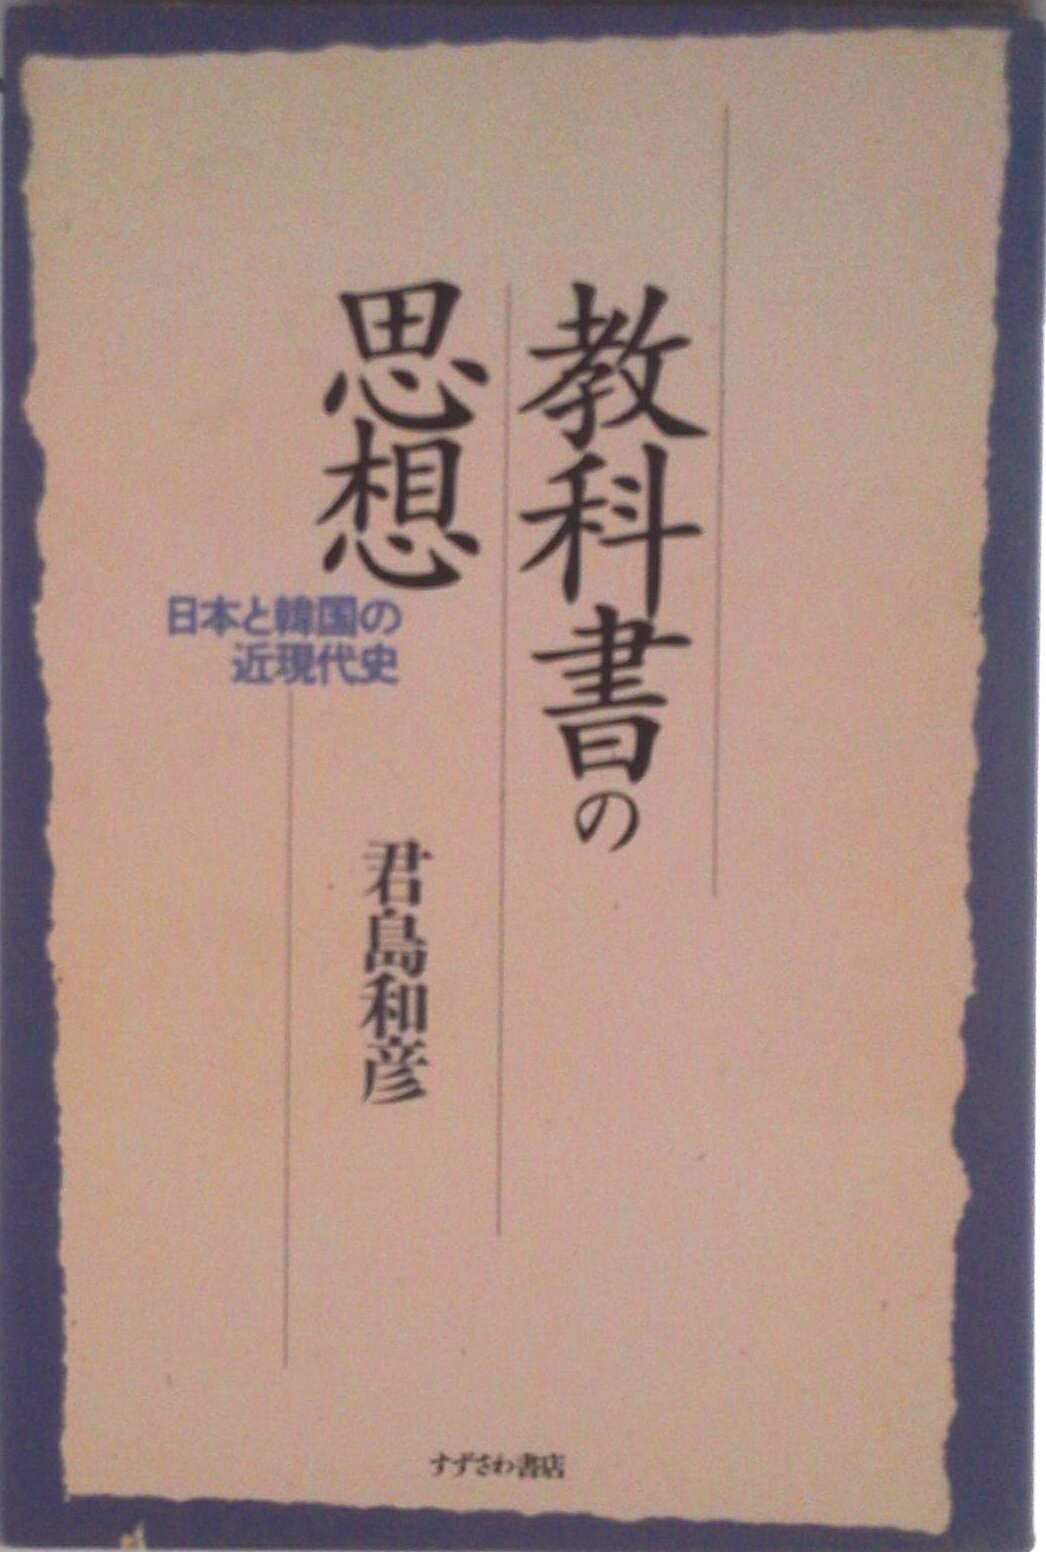 教科書の
思想
日本と韓国の
近現代史
君島和彦
すずさわ書店